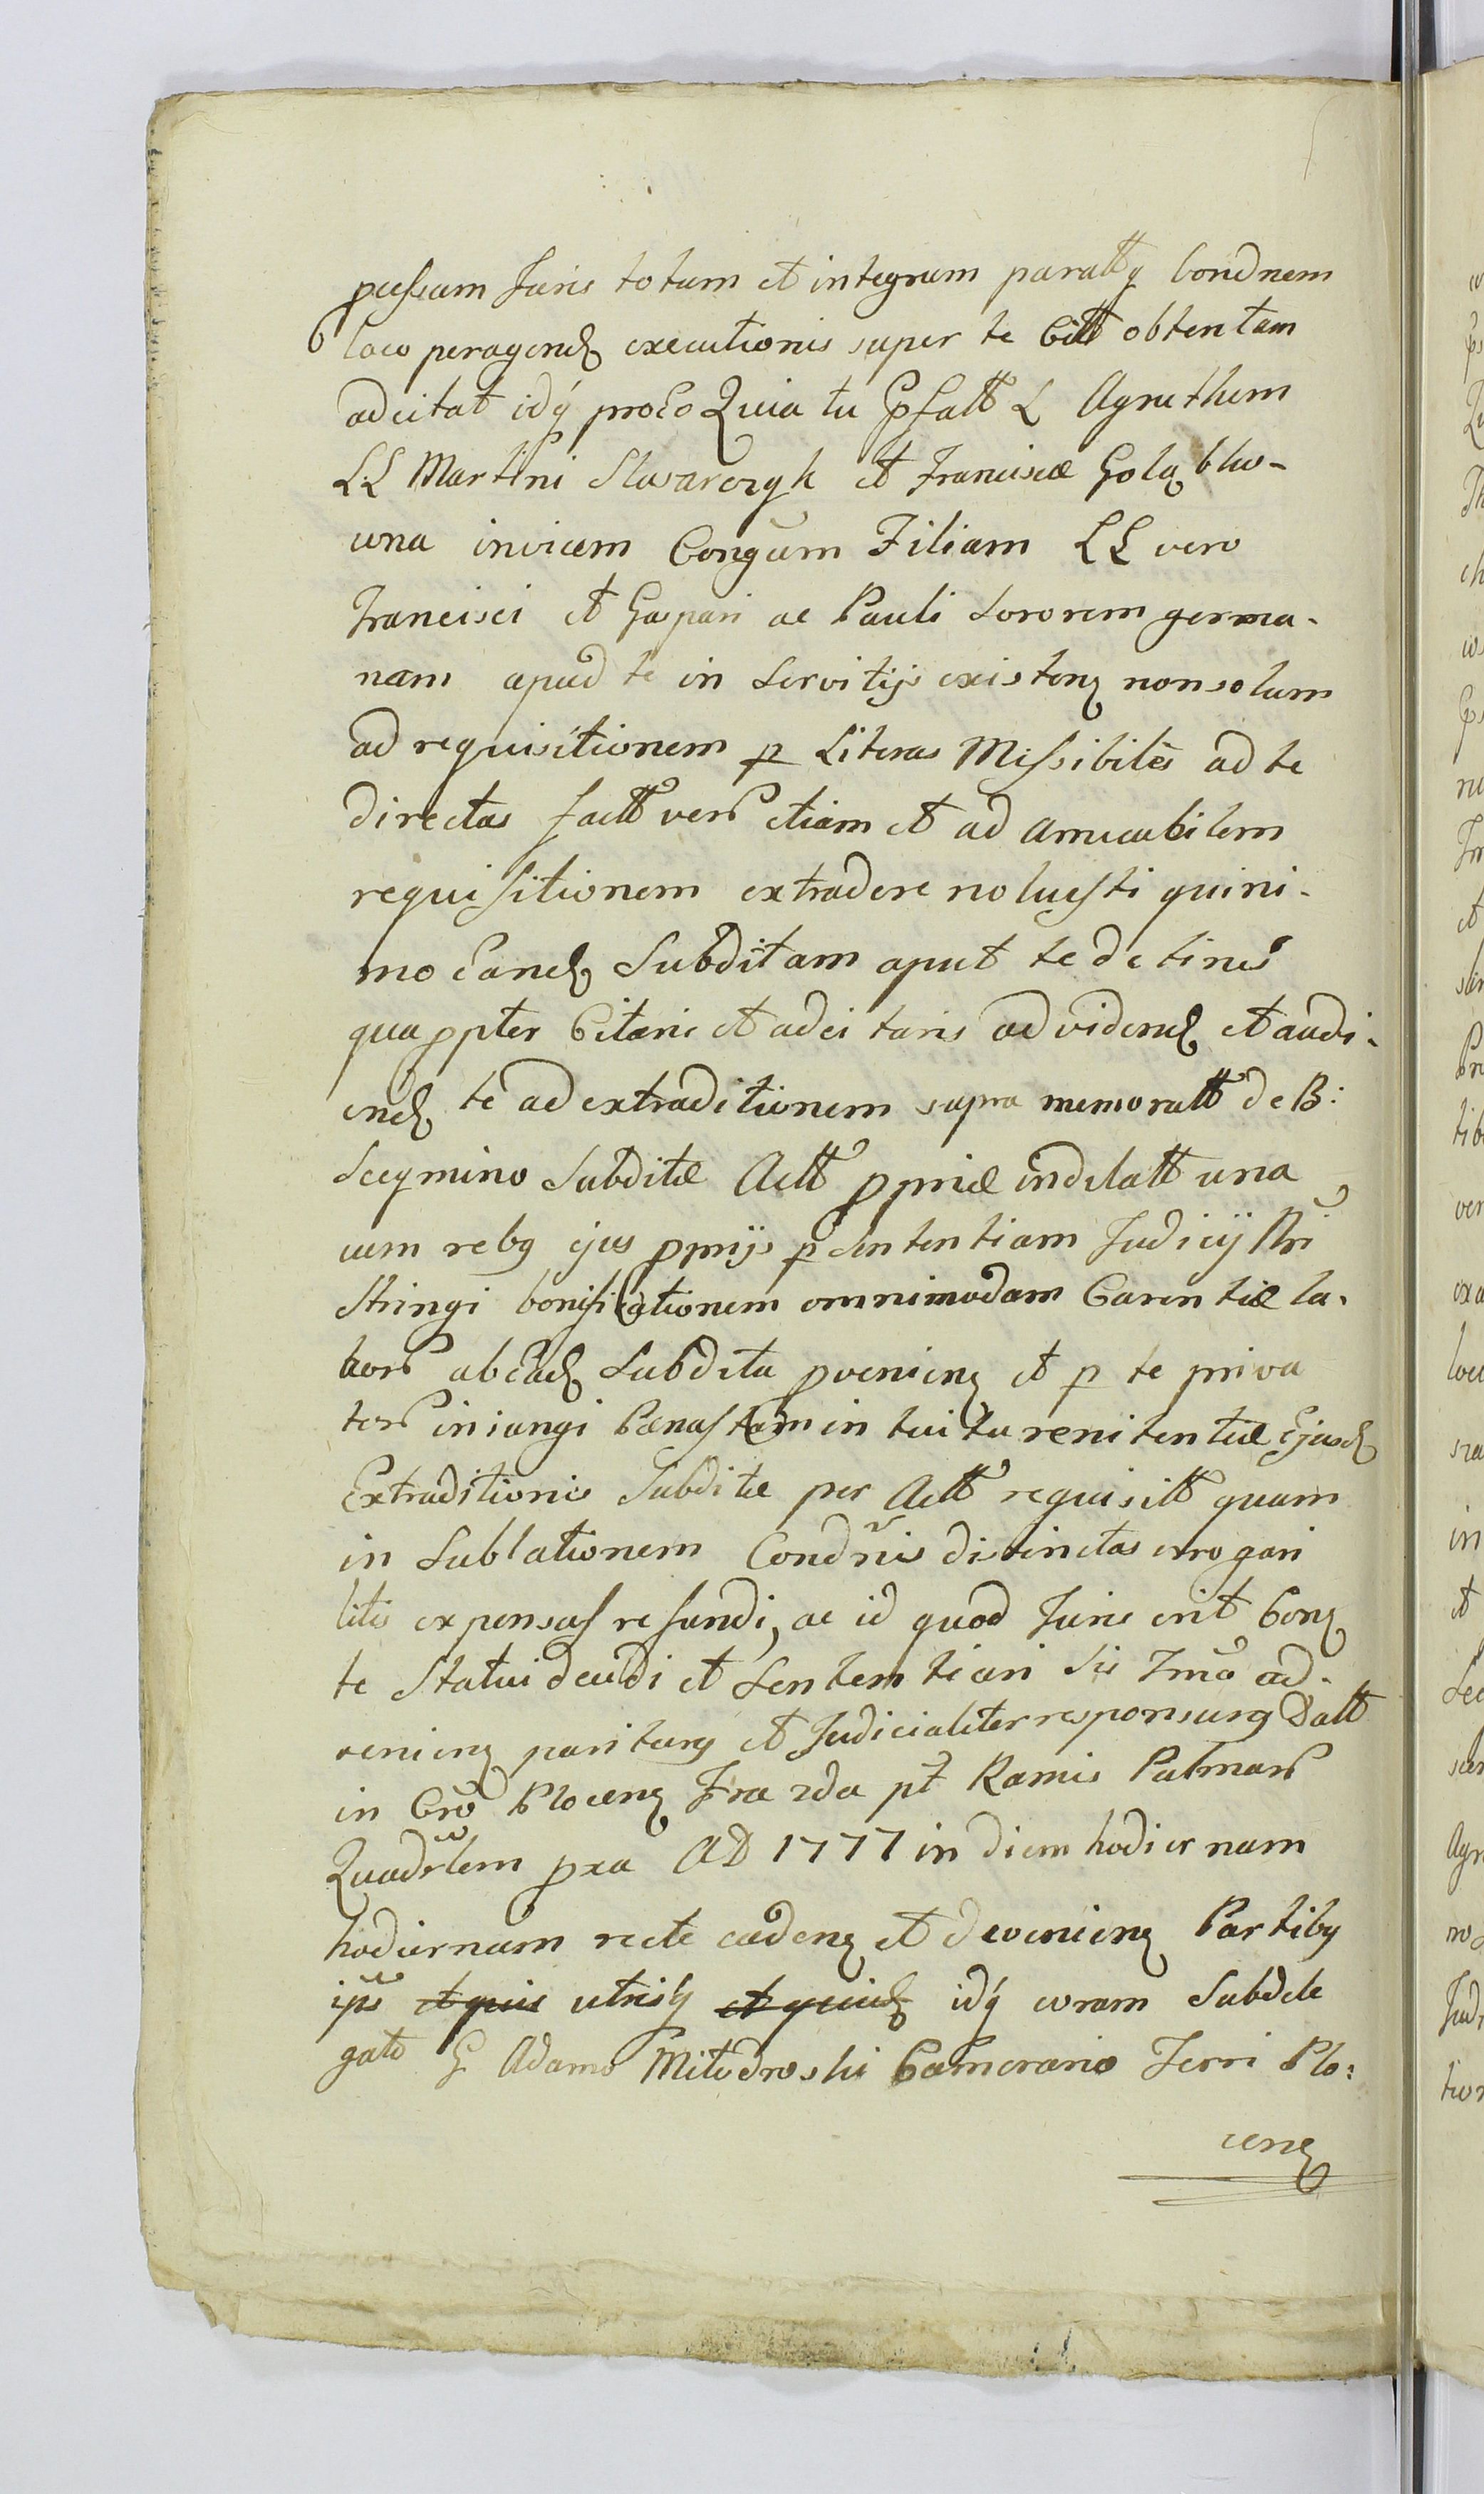 pcessum Juris totum et integrum paratq condnem
loco peragend executionis super te Citt obtentam
adcitat idq proeo Quia tu Ppfatt L Agnethem
LL Martini Slwsarczyk et Franciscæ Goląbko-
wna invicem Congum Filiam LL vero
Francisci et Gaspari ac Pauli Sororem germa-
nam apud te in Servitijs existenz non solum
ad requisitionem p Literas Missibiles ad te
directas factt vers etiam et ad amicabilem
requisitionem extradere noluisti quini-
mo eand Subditam aput te detines
quappter Citaris et adcitaris ad videnđ et audi-
end te ad extraditionem supra memoratt de B:
Scegmino Subditæ Actt ppriæ indilatt una
cum rebq ejus pprijs p Sententiam Judicij Pri
Stringi bonificationem omnimodam Carentiæ la-
bors ab ead Subdita pvenienz et p te priva
ters iniungi Pænas tam intuitu renitentiæ Ejusd
Extraditionis Subditæ per Actt requisitt quam
in Sublationem Condnis distinctas irrogari
litis expensas refundi, ac id quod Juris erit Conz
te Statui decidi et Sententiari Sis Tmo ad-
venienz pariturq et Judicialiter responsurq Datt
in Cro Plocenz Fra 2da pt Ramis Palmars
Quadrlem pxa AD 1777 in diem hodiernam
hodiernam recte cadenz et devenienz Partibq
ipis et quis utrisq et quid idq coram Subdele
gato G Adamo Mitodroski Camerario Terri Plo:
cenz